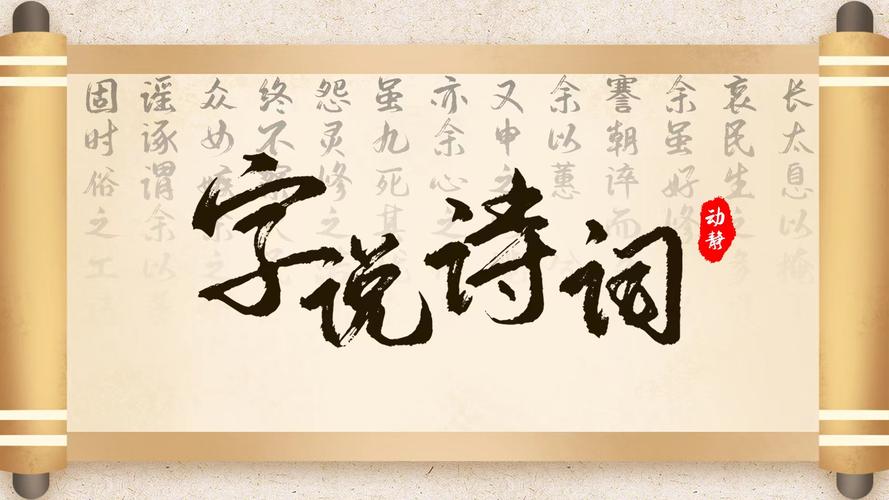 字说诗词
动静
长太息以掩
哀民生之多
余虽好修
謇朝谇而
余以蕙
又申之
亦余心之
虽九死其
怨灵修之
终不察
众女嫉余之
谣诼谓余以善
固时俗之工